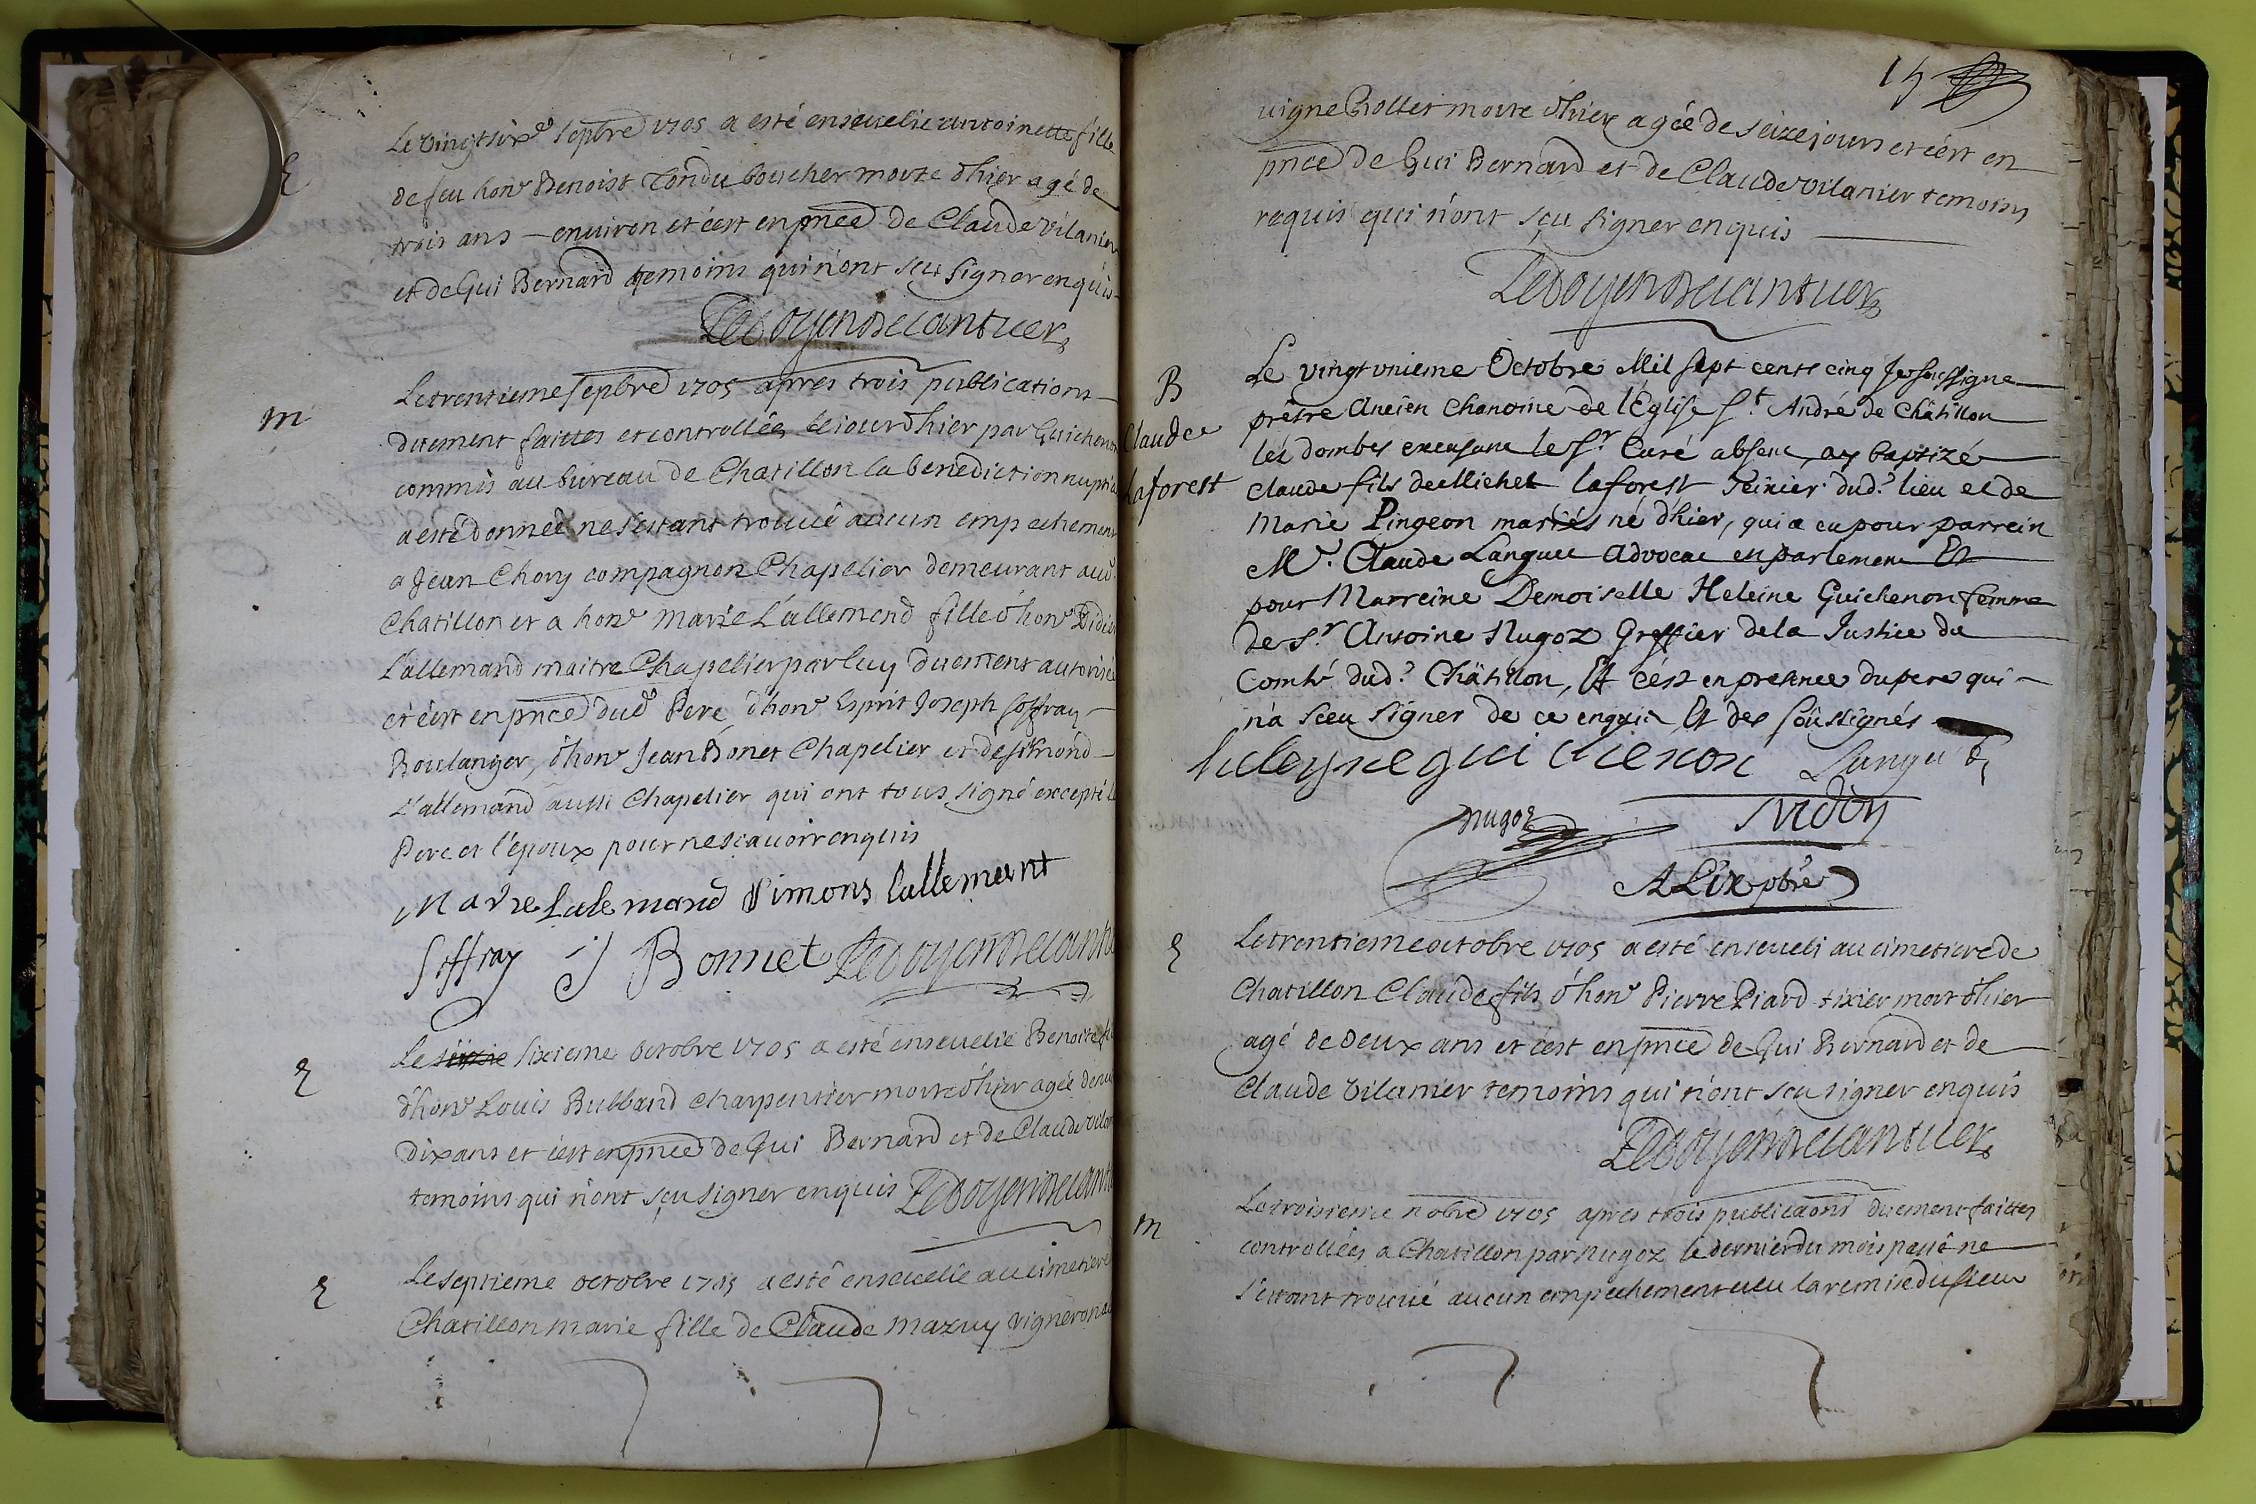 E
Le vingtsixe sepbre 1705 a esté enseuelie antoinette fille
de feu hone Benoist Tondu boucher morte d'hier agé de
trois ans — enuiron et c'est en pnce de Claude vilanier
et de Gui Bernard temoins qui n'ont seu signer enquis
Ledoyendecantuer
m
Le trentieme sepbre 1705 apres trois publications
duement faittes et controllées le iour d'hier par Guichenon
commis au bureau de Chatillon la benediction nuptia
a esté donnée ne s'estant trouué aucun empechement
a Jean Chory compagnon Chapelier demeurant aud
Chatillon et a hone marie L'allemend fille d'hone Didier
L'allemand maitre Chapelier par luy duement autorisé
et c'est en pnce dud Pere d'hone Esprit Joseph soffray
Boulanger, d'hone Jean Bonet Chapelier et de simond
L'allemand aussi Chapelier qui ont tous signé excepté le
Pere et l'epoux pour ne scauoir enquis
Marie Lalemand Simons lallemant
Soffray J Bonnet Ledoyendecantu
E
Le sixieme octobre 1705 a esté enseuelie Benoite fi
d'hone Louis Bulband charpentier morte d'hier agée denu
dix ans et c'est en pnce de Gui Bernard et de Claude vilan
temoins qui n'ont sçu signer enquis Ledoyendecant
E
Le septieme octobre 1705 a esté enseuelie au cimetiere
Chatillon marie fille de Claude mazuy vigneron au
15
vigne morte d'hier agée de seize jours et c'est en
pnce de Gui Bernard et de Claude vilanier temoins
requis qui n'ont sçu signer enquis
Ledoyendecantuer
B
Claude
Laforest
Le vingt vnieme Octobre Mil sept cents cinq Je soussigné
prêtre Ancien Chanoine de l'Eglise St André de Châtillon
lés dombes excusant le Sr Curé absent, ay baptizé
Claude fils de Michel laforest Teinier dud? lieu et de
Marie Pingeon mariés né d'hier, qui a eu pour parrein
Mr. Claude Languet Advocat en parlement Et
pour Marreine Demoiselle Heleine Guichenon femme
de Sr Antoine Nugoz Greffier de la Justice du
Comté dud? Châtillon, Et c'est en presence du pere qui
n'a sceu signer de ce enquis Et des soussignés
heleyne gui chenon Languet
nugoz
ALix pbre
E
Le trentieme octobre 1705 a esté enseueli au cimetiere de
Chatillon Claude fils d'hone Pierre Piard tixier mort d'hier
agé de deux ans et c'est en pnce de Gui Bernard et de
Claude vilanier temoins qui n'ont seu signer enquis
Ledoyendecantuer
m
Le troisieme nobre 1705 apres trois publicaons duement faittes
controllées a Chatillon par nugoz le dernier du mois passé ne
s'estant trouué aucun empechement ueu la remise du sieur